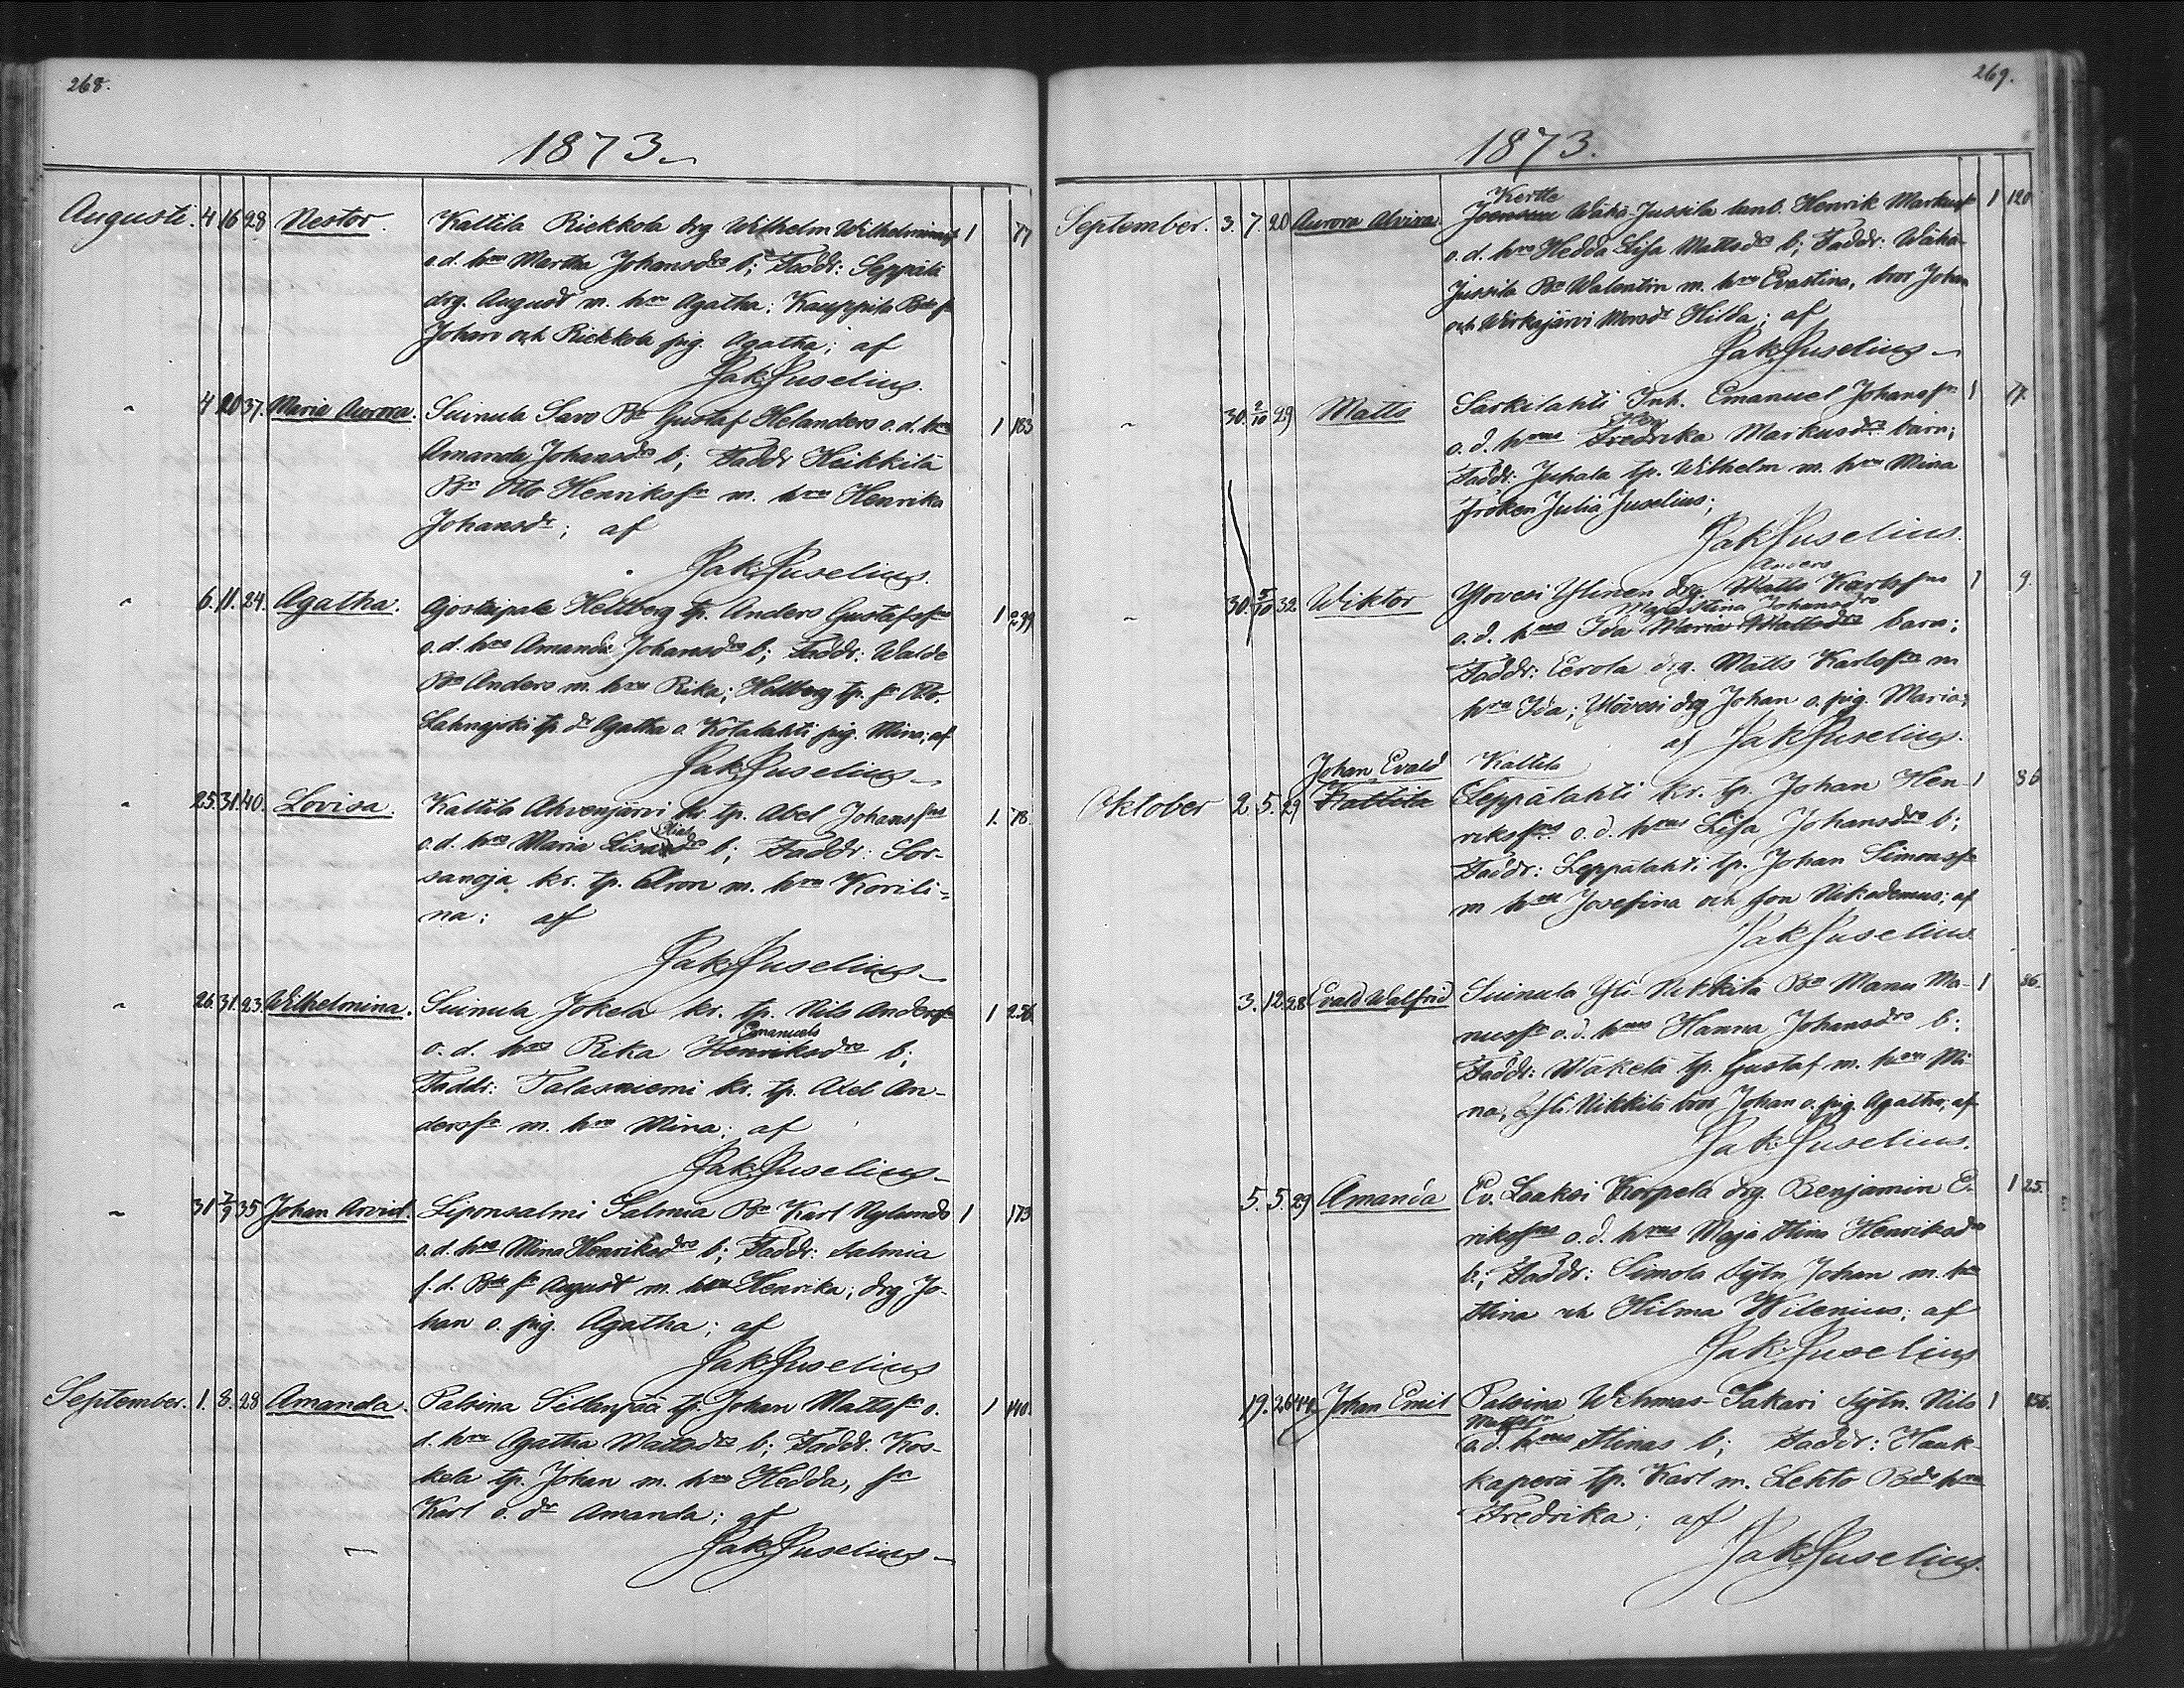 268.
1873.
Augusti. 4 16 28 Nestor. Kattila Riekkola drg Wilhelm Wilhelminasf 1 77
o.d. hrs Martha Johansdrs b; Faddr: Seppilä
drg. August m. hru Agatha; Kauppila Bds sn
Johan och Riekkola pig. Agatha; af
Jak. Juselius.
" 4 20 37. Maria Aurora. Suinula Savo Bn Gustaf Helanders o.d. hrs 1 183
Amanda Johansdrs b; Faddr Heikkilä
Bn Otto Henrikssn m. hru Henrika
Johansdr; af
Jak. Juselius.
" 6. 11. 24. Agatha. Hellberg tp. Anders Gustafssns 1 299
o.d. hrs Amanda Johansdrs b; Faddr: Walde
Bn Anders m. hru Rika; Hellberg tp. sn Otto.
Lahnajoki tp. dr Agatha o. Kotalahti pig. Mina; af
Jak. Juselius
" 25. 31. 40. Lovisa. Kattila Ahvenjärvi kr. tp. Abel Johanssns 1. 78.
o.d. hrs Maria Lisas drs b; Faddr: Sor-
sanoja kr. tp. Aron m. hru Korili-
na; af
Jak. Juselius
" 26. 31. 23. Wilhelmina. Suinula Jokela kr. tp. Nils Anderssn 1 256
Emanuels
o. d. hrs Rika Henriksdrs b;
Faddr: Talasniemi kr. tp. Axel An-
derssn m. hru Mina; af
Jak. Juselius
" 31 2/9 35 Johan Arvid. Liponsalmi Salmia Bn Karl Nylunds 1 173
o.d. hrs Mina Henriksdrs b; Faddr: Salmia
f.d. Bds sn August m. hru Henrika; drg Jo-
han o. pig. Agatha; af
Jak. Juselius
September. 1. 8. 28 Amanda. Palsina Sillanpää tp. Johan Mattssn o. 1 140.
d. hru Agatha Mattsdrs b; Faddr. Kos-
kela tp. Johan m. hru Hedda, sn
Karl o. dr Amanda; af
Jak. Juselius
269.
1873.
Kertte
September. 3. 7. 20 Aurora Alvira. Joensuu Wähä-Jussila lanb. Henrik Markussn 1 120
o.d. hrs Hedda Lisa Mattsdrs b; Faddr: Wähä-
jussila Bn Walentin m. hru Evastina, bror Johan
och Wirkajärvi Morsdr Hilda; af
Jak. Juselius
" 30. 2/10 29 Matts Särkilahti Inh. Emanuel Johanssn 1 17.
o.d. hrus Fredrika Markusdrs barn;
Faddr: Juhala tp. Wilhelm m. hru Mina
fröken Julia Juselius;
Jak Juselius.
Anders
" 30. 5/10 32 Wiktor Ylövesi Ylinen drg. Matts Karlssns 1 9.
Maja Stina Johansdrs
o.d. hrus Ida Maria Mattsdrs barn;
Faddr: Eerola drg. Matts Karlssn m
hru Ida; Ylövesi drg Johan o. pig. Maria;
af Jak Juselius.
Johan Evald Kattila
Oktober 2. 5. 29 Kattila Leppälahti kr. tp. Johan Hen- 1 86
rikssns o.d. hrus Lisa Johansdrs b;
Faddr: Leppälahti tp. Johan Simonssn
m hru Josefina och son Nikodemus; af
Jak Juselius
3. 12. 28 Evald Walfrid Suinula Yli-Nikkilä Bn Manu Ma- 1 86.
nussn o.d. hrus Hanna Johansdrs b;
Faddr: Wäkelä tp. Gustaf m. hru Mi
na; Yli Nikkilä bror Johan o. pig. Agatha; af
Jak. Juselius.
5. 5. 29 Amanda Ev. Laaksi Korpela drg. Benjamin E- 1 25.
rikssns o.d. hrus Maja Stina Henriksdrs
b; Faddr: Simola Sytn. Johan m. hru
Stina och Hilma Wilenius; af
Jak. Juselius
19. 26 44 Johan Emil Palsina Wehmas-Sakari Sytn. Nils 1 156.
Mattssn
o.d. hrus Stinas b; Faddr: Hauk-
kaperä tp. Karl m. Lehto Bds hru
Fredrika; af
Jak Juselius.